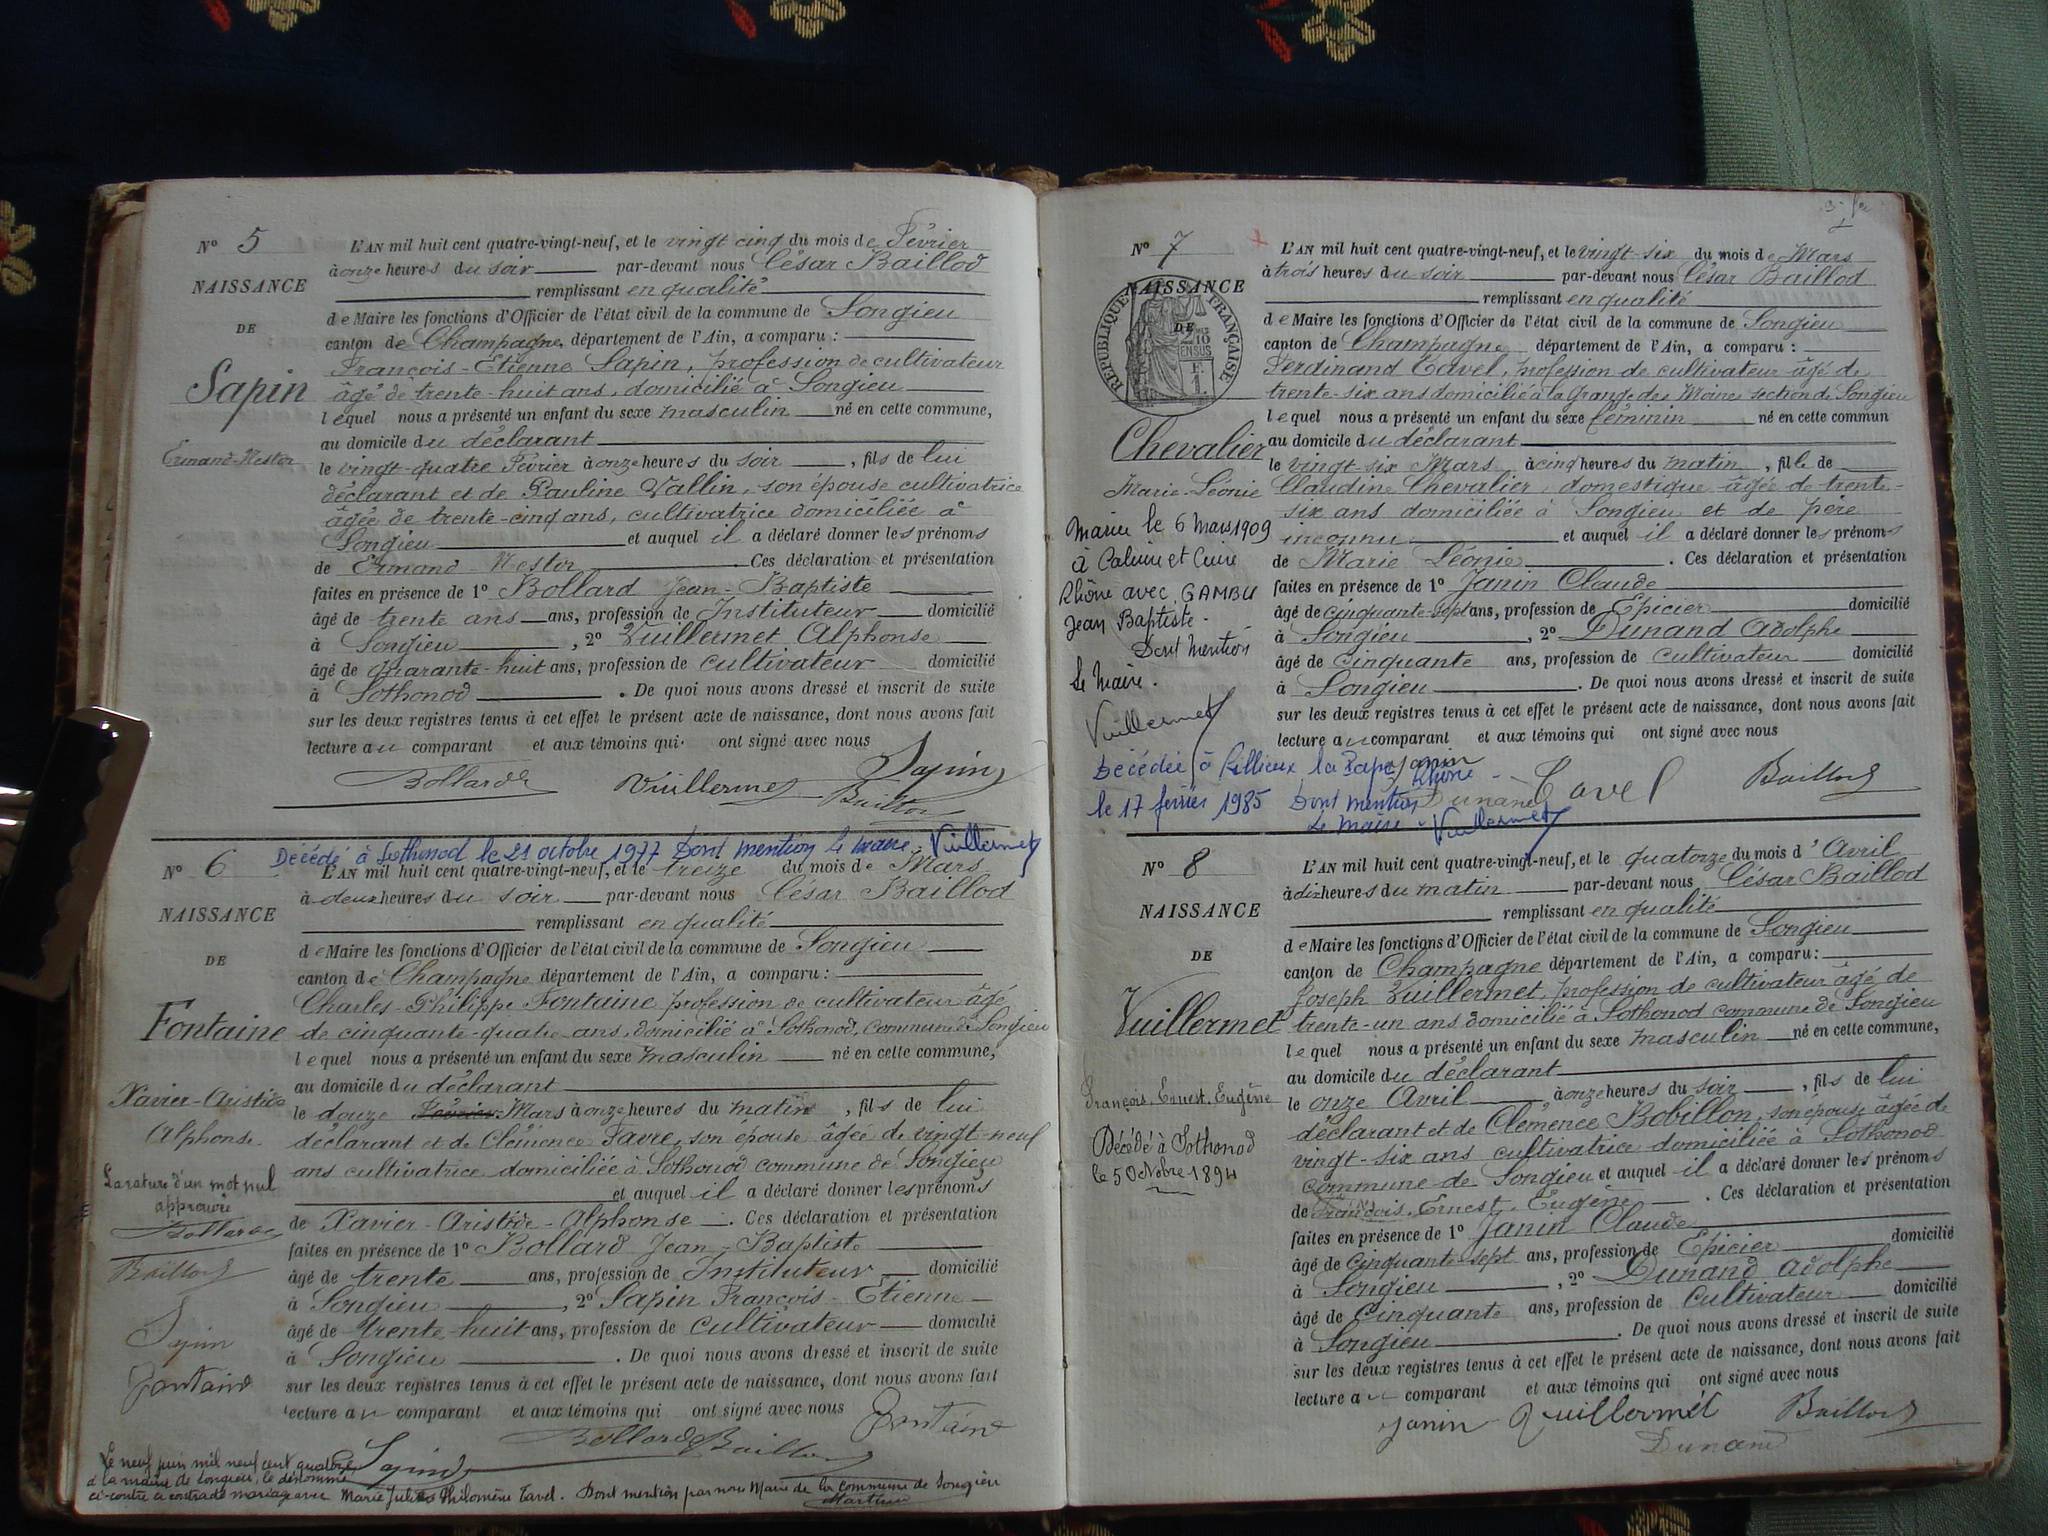 Nº 5
NAISSANCE
DE
Sapin
Ermand-Nestor
L'AN mil huit cent quatre-vingt-neuf, et le vingt cinq du mois de Février
à onze heures du soir par-devant nous César Baillod
remplissant en qualité
de Maire les fonctions d'Officier de l'état civil de la commune de Songieu
canton de Champagne, département de l'Ain, a comparu :
François-Etienne Sapin, profession de cultivateur
âgé de trente-huit ans, domicilié à Songieu
lequel nous a présenté un enfant du sexe masculin né en cette commune,
au domicile du déclarant
le vingt-quatre Février à onze heures du soir, fils de lui
déclarant et de Pauline Vallin, son épouse cultivatrice
âgée de trente-cinq ans, cultivatrice domiciliée à
Songieu et auquel il a déclaré donner les prénoms
de Ermand-Nestor. Ces déclaration et présentation
faites en présence de 1º Bollard Jean-Baptiste
âgé de trente ans ans, profession de Instituteur domicilié
à Songieu, 2º Vuillermet Alphonse
âgé de quarante-huit ans, profession de cultivateur domicilié
à Sothonod. De quoi nous avons dressé et inscrit de suite
sur les deux registres tenus à cet effet le présent acte de naissance, dont nous avons fait
lecture au comparant et aux témoins qui ont signé avec nous
Bollard Vuillermet Sapin
Baillod
Décédé à Sothonod le 21 octobre 1977 Dont mention le maire. Vuillermet
Nº 6
NAISSANCE
DE
Fontaine
Xavier-Aristide
Alphonse.
La rature d'un mot nul
approuvée
Bollard
Baillod
Sapin
Fontaine
L'AN mil huit cent quatre-vingt-neuf, et le treize du mois de Mars
à deux heures du soir par-devant nous César Baillod
remplissant en qualité
de Maire les fonctions d'Officier de l'état civil de la commune de Songieu
canton de Champagne département de l'Ain, a comparu :
Charles-Philippe Fontaine profession de cultivateur âgé
de cinquante-quatre ans, domicilié à Sothonod, commune de Songieu
lequel nous a présenté un enfant du sexe masculin né en cette commune,
au domicile du déclarant
le douze Février Mars à onze heures du matin, fils de lui
déclarant et de Clémence Favre, son épouse âgée de vingt-neuf
ans cultivatrice domiciliée à Sothonod commune de Songieu
et auquel il a déclaré donner les prénoms
de Xavier-Aristide-Alphonse. Ces déclaration et présentation
faites en présence de 1º Bollard Jean-Baptiste
âgé de trente ans, profession de Instituteur domicilié
à Songieu, 2º Sapin François-Etienne
âgé de trente-huit ans, profession de cultivateur domicilié
à Songieu. De quoi nous avons dressé et inscrit de suite
sur les deux registres tenus à cet effet le présent acte de naissance, dont nous avons fait
lecture au comparant et aux témoins qui ont signé avec nous
Fontaine
Bollard Baillod
Sapin
Le neuf juin mil neuf cent quatorze
à la mairie de Songieu, le dénommé
ci-contre a contracté mariage avec Marie Philomène Tavel. Dont mention par nous Maire de la commune de Songieu
Nº 7
NAISSANCE
DE
RÉPUBLIQUE FRANÇAISE
2/10 EN SUS
Chevalier
Marie-Léonie
Mariée le 6 Mars 1909
à Caluire et Cuire
Rhône avec GAMBU
Jean Baptiste.
Dont mention
Le Maire.
Vuillermet
L'AN mil huit cent quatre-vingt-neuf, et le vingt-six du mois de Mars
à trois heures du soir par-devant nous César Baillod
remplissant en qualité
de Maire les fonctions d'Officier de l'état civil de la commune de Songieu
canton de Champagne département de l'Ain, a comparu :
Ferdinand Tavel, profession de cultivateur âgé de
trente-six ans domicilié à la Grange des Moines section de Songieu
lequel nous a présenté un enfant du sexe féminin né en cette commun
au domicile du déclarant
le vingt-six Mars à cinq heures du matin, fille de
Claudine Chevalier, domestique âgée de trente-
six ans domiciliée à Songieu et de père
inconnu et auquel il a déclaré donner les prénoms
de Marie Léonie. Ces déclaration et présentation
faites en présence de 1º Janin Claude
âgé de cinquante-sept ans, profession de Épicier domicilié
à Songieu, 2º Dunand Adolphe
âgé de cinquante ans, profession de cultivateur domicilié
à Songieu. De quoi nous avons dressé et inscrit de suite
sur les deux registres tenus à cet effet le présent acte de naissance, dont nous avons fait
lecture au comparant et aux témoins qui ont signé avec nous
Janin Dunand Tavel Baillod
Décédée à Rillieux la Pape Rhône
le 17 février 1985 Dont mention
Le Maire. Vuillermet
Nº 8
NAISSANCE
DE
Vuillermet
François, Ernest, Eugène
Décédé à Sothonod
le 5 Octobre 1894
L'AN mil huit cent quatre-vingt-neuf, et le quatorze du mois d'Avril
à dix heures du matin par-devant nous César Baillod
remplissant en qualité
de Maire les fonctions d'Officier de l'état civil de la commune de Songieu
canton de Champagne département de l'Ain, a comparu :
Joseph Vuillermet, profession de cultivateur âgé de
trente-un ans domicilié à Sothonod commune de Songieu
lequel nous a présenté un enfant du sexe masculin né en cette commune,
au domicile du déclarant
le onze Avril à onze heures du soir, fils de lui
déclarant et de Clémence Bobillon, son épouse âgée de
vingt-six ans cultivatrice domiciliée à Sothonod
commune de Songieu et auquel il a déclaré donner les prénoms
de François, Ernest, Eugène. Ces déclaration et présentation
faites en présence de 1º Janin Claude
âgé de cinquante-sept ans, profession de Epicier domicilié
à Songieu, 2º Dunand Adolphe
âgé de cinquante ans, profession de cultivateur domicilié
à Songieu. De quoi nous avons dressé et inscrit de suite
sur les deux registres tenus à cet effet le présent acte de naissance, dont nous avons fait
lecture au comparant et aux témoins qui ont signé avec nous
Janin Vuillermet Baillod
Dunand